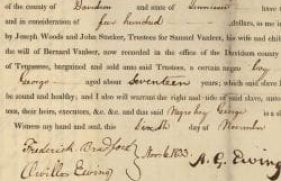 of the county of Davidson and state of Tennessee have
and in consideration of five hundred dollars, to me in
by Joseph Woods and John Stacker, Trustees for Samuel Vanleer, his wife and child
the will of Bernard Vanleer, now recorded in the office of the Davidson county
of Tennessee, bargained and sold unto said Trustees, a certain negro boy
George aged about Seventeen years; which said slave
be sound and healthy; and I also will warrant the right and title of said slave, unto
tees, their heirs, executors, &c. &c. and that said Negro boy George
Witness my hand and seal, this Sixth day of November
Frederick Bradford
Nov 6. 1833. A. G. Ewing
Orville Ewing